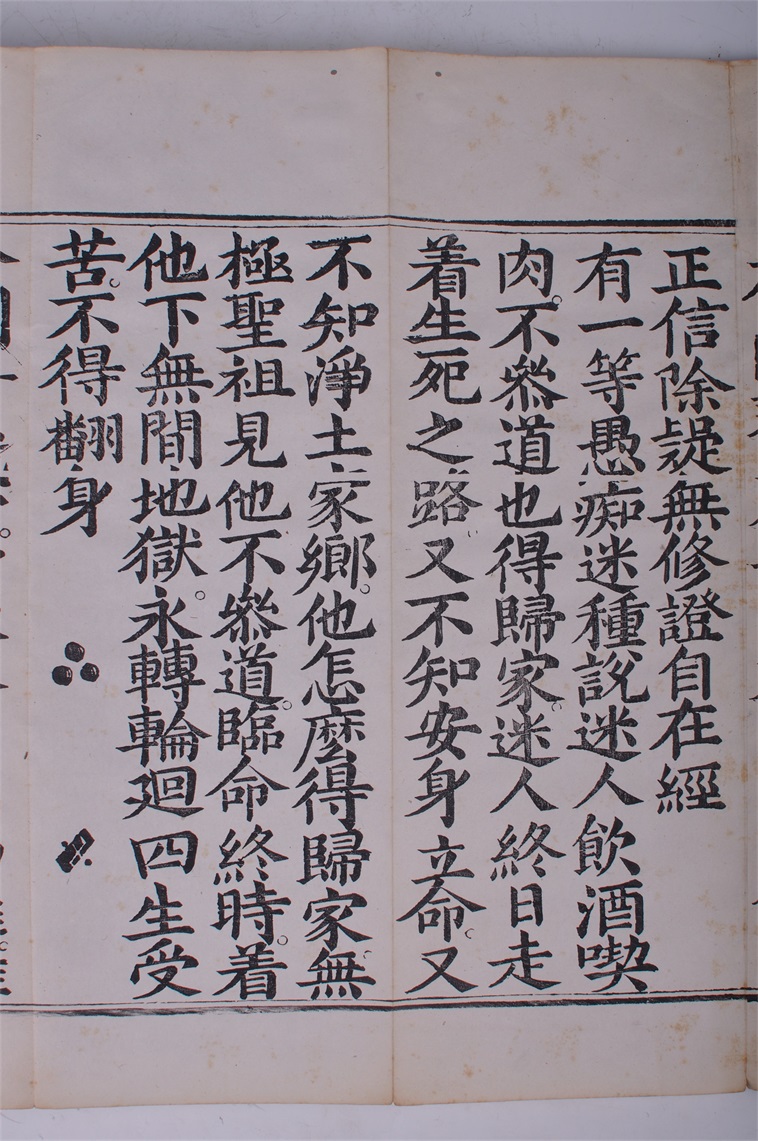 正信除疑無修證自在經
有一等愚痴迷種說迷人飲酒喫
肉。不叅道也得歸家。迷人終日走
着生死之路。又不知安身立命。又
不知淨土家鄉。他怎麼得歸家無
極聖祖見他不叅道。臨命終時。着
他下無間地獄。永轉輪廻四生受
苦。不得翻身